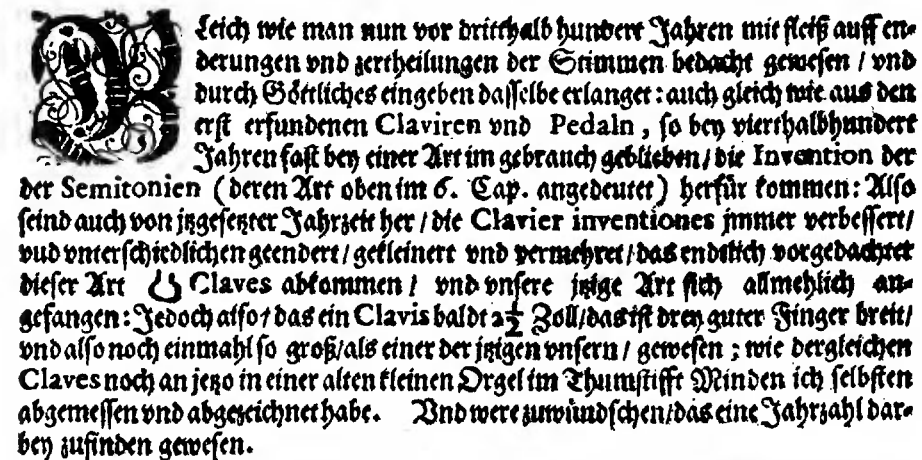 Gleich wie man nun vor dritthalb hundert Jahren mit fleiß auff en-
derungen vnd zertheilungen der Stimmen bedacht gewesen / vnd
durch Göttliches eingeben dasselbe erlanget: auch gleich wie aus den
erst erfundenen Claviren vnd Pedaln, so bey vierthalbhundert
Jahren fast bey einer Art im gebrauch geblieben / die Invention der
der Semitonien (deren Art oben im 6. Cap. angedeutet) herfür kommen: Also
seind auch von jtzgesetzter Jahrzeit her / die Clavier inventiones jmmer verbessert /
vnd vnterschiedlichen geendert / gekleinert vnd vermehret / das endtlich vorgedachter
dieser Art Claves abkommen / vnd vnsere jtzige Art sich allmehlich an-
gefangen: Jedoch also / das ein Clavis baldt 2½ Zoll / das ist drey guter Finger breit /
vnd also noch einmahl so groß / als einer der jtzigen vnsern / gewesen; wie dergleichen
Claves noch an jetzo in einer alten kleinen Orgel im Thumstifft Minden ich selbsten
abgemessen vnd abgezeichnet habe. Vnd were zuwündschen / das eine Jahrzahl dar-
bey zufinden gewesen.